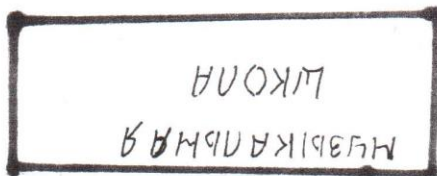 МУЗЫКАЛЬНАЯ
ШКОЛА